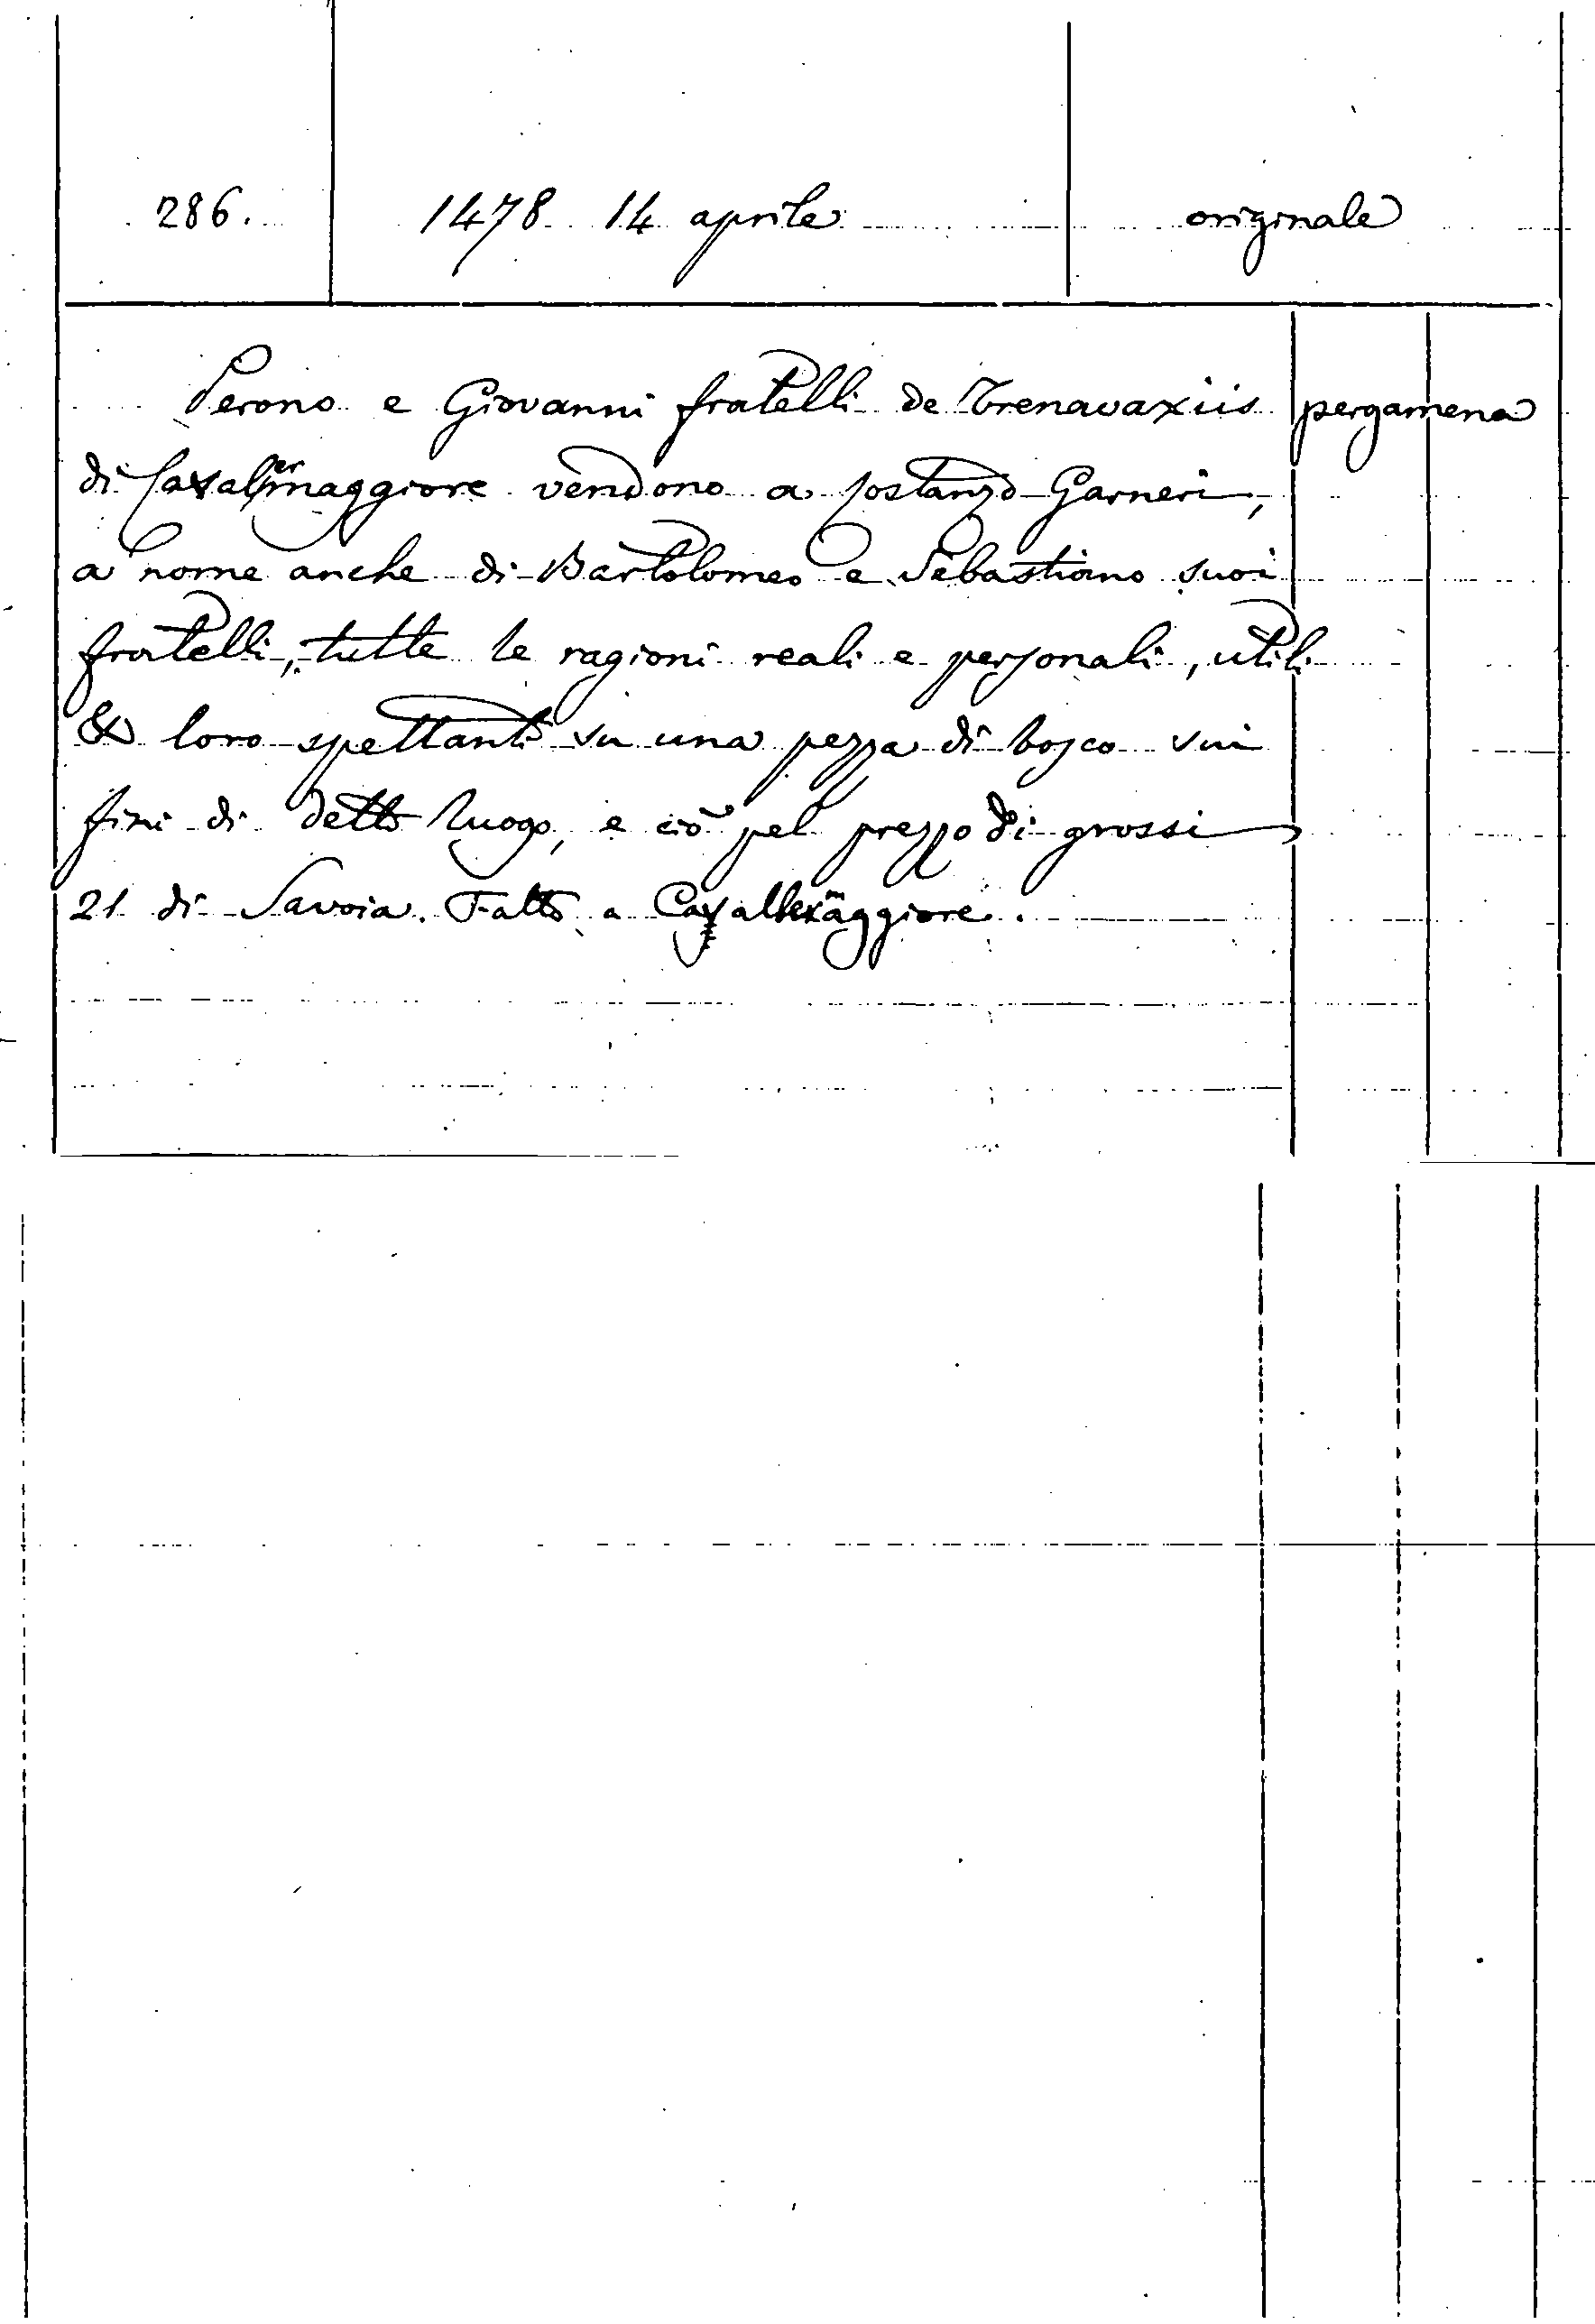 286. 1478 14 aprile originale
Perono e Giovanni fratelli de Trenavaxiis pergamena
di Cavallermaggiore vendono a Costanzo Garneri,
a nome anche di Bartolomeo e Sebastiano suoi
fratelli, tutte le ragioni reali e personali, utili
& loro spettanti su una pezza di bosco sui
fini di detto luogo, e ciò pel prezzo di grossi
21 di Savoia. Fatto a Cavallermaggiore.